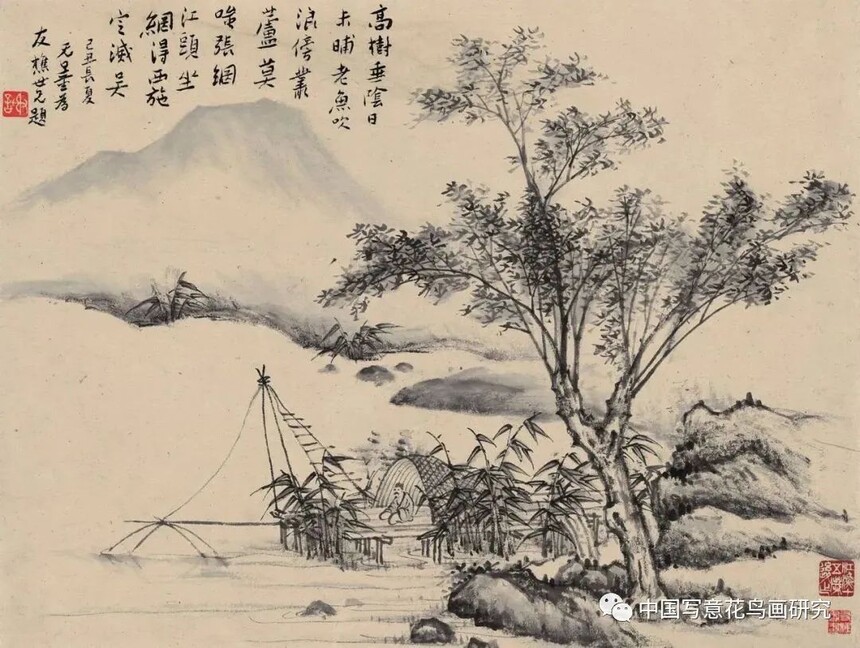 高樹垂陰日
未晡老魚吹
浪傍叢
蘆莫
嗤張網
江頭坐
網得西施
定滅吳
己丑長夏
為
友樵世兄題
中国写意花鸟画研究